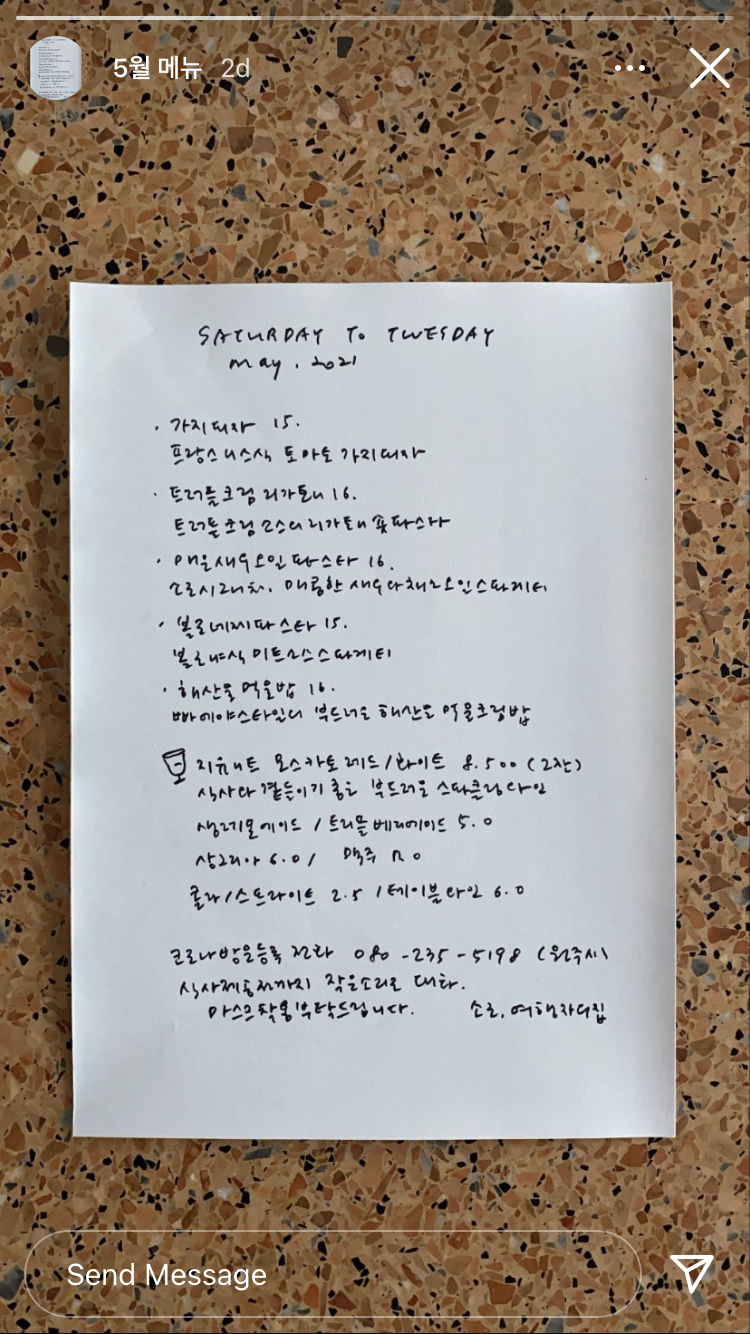 5월 메뉴 2d
SATURDAY To TUESDAY
may. 2021
· 가지피자 15.
프랑스 니스식 토마토 가지피자
· 트러플크림 리가토니 16.
트러플크림소스의 리가토니 숏파스타
· 매운새우오일 파스타 16.
매콤한 새우야채 오일스파게티
· 볼로네제파스타 15.
볼로냐식 미트소스스파게티
· 해산물먹물밥 16.
빠에야스타일의 부드러운 해산물 먹물크림밥
지유세트 모스카토 레드/화이트 8.500 (2잔)
식사와 곁들이기 좋은 부드러운 스파클링와인
생레몬에이드 / 트리플베리에이드 5.0
상그리아 6.0 / 맥주
콜라/스프라이트 2.5 / 테이블와인 6.0
코로나방문등록 전화 080-235-5198 (원주시)
식사제공전까지 작은소리로 대화.
마스크착용부탁드립니다. 소로, 여행자의집
Send Message